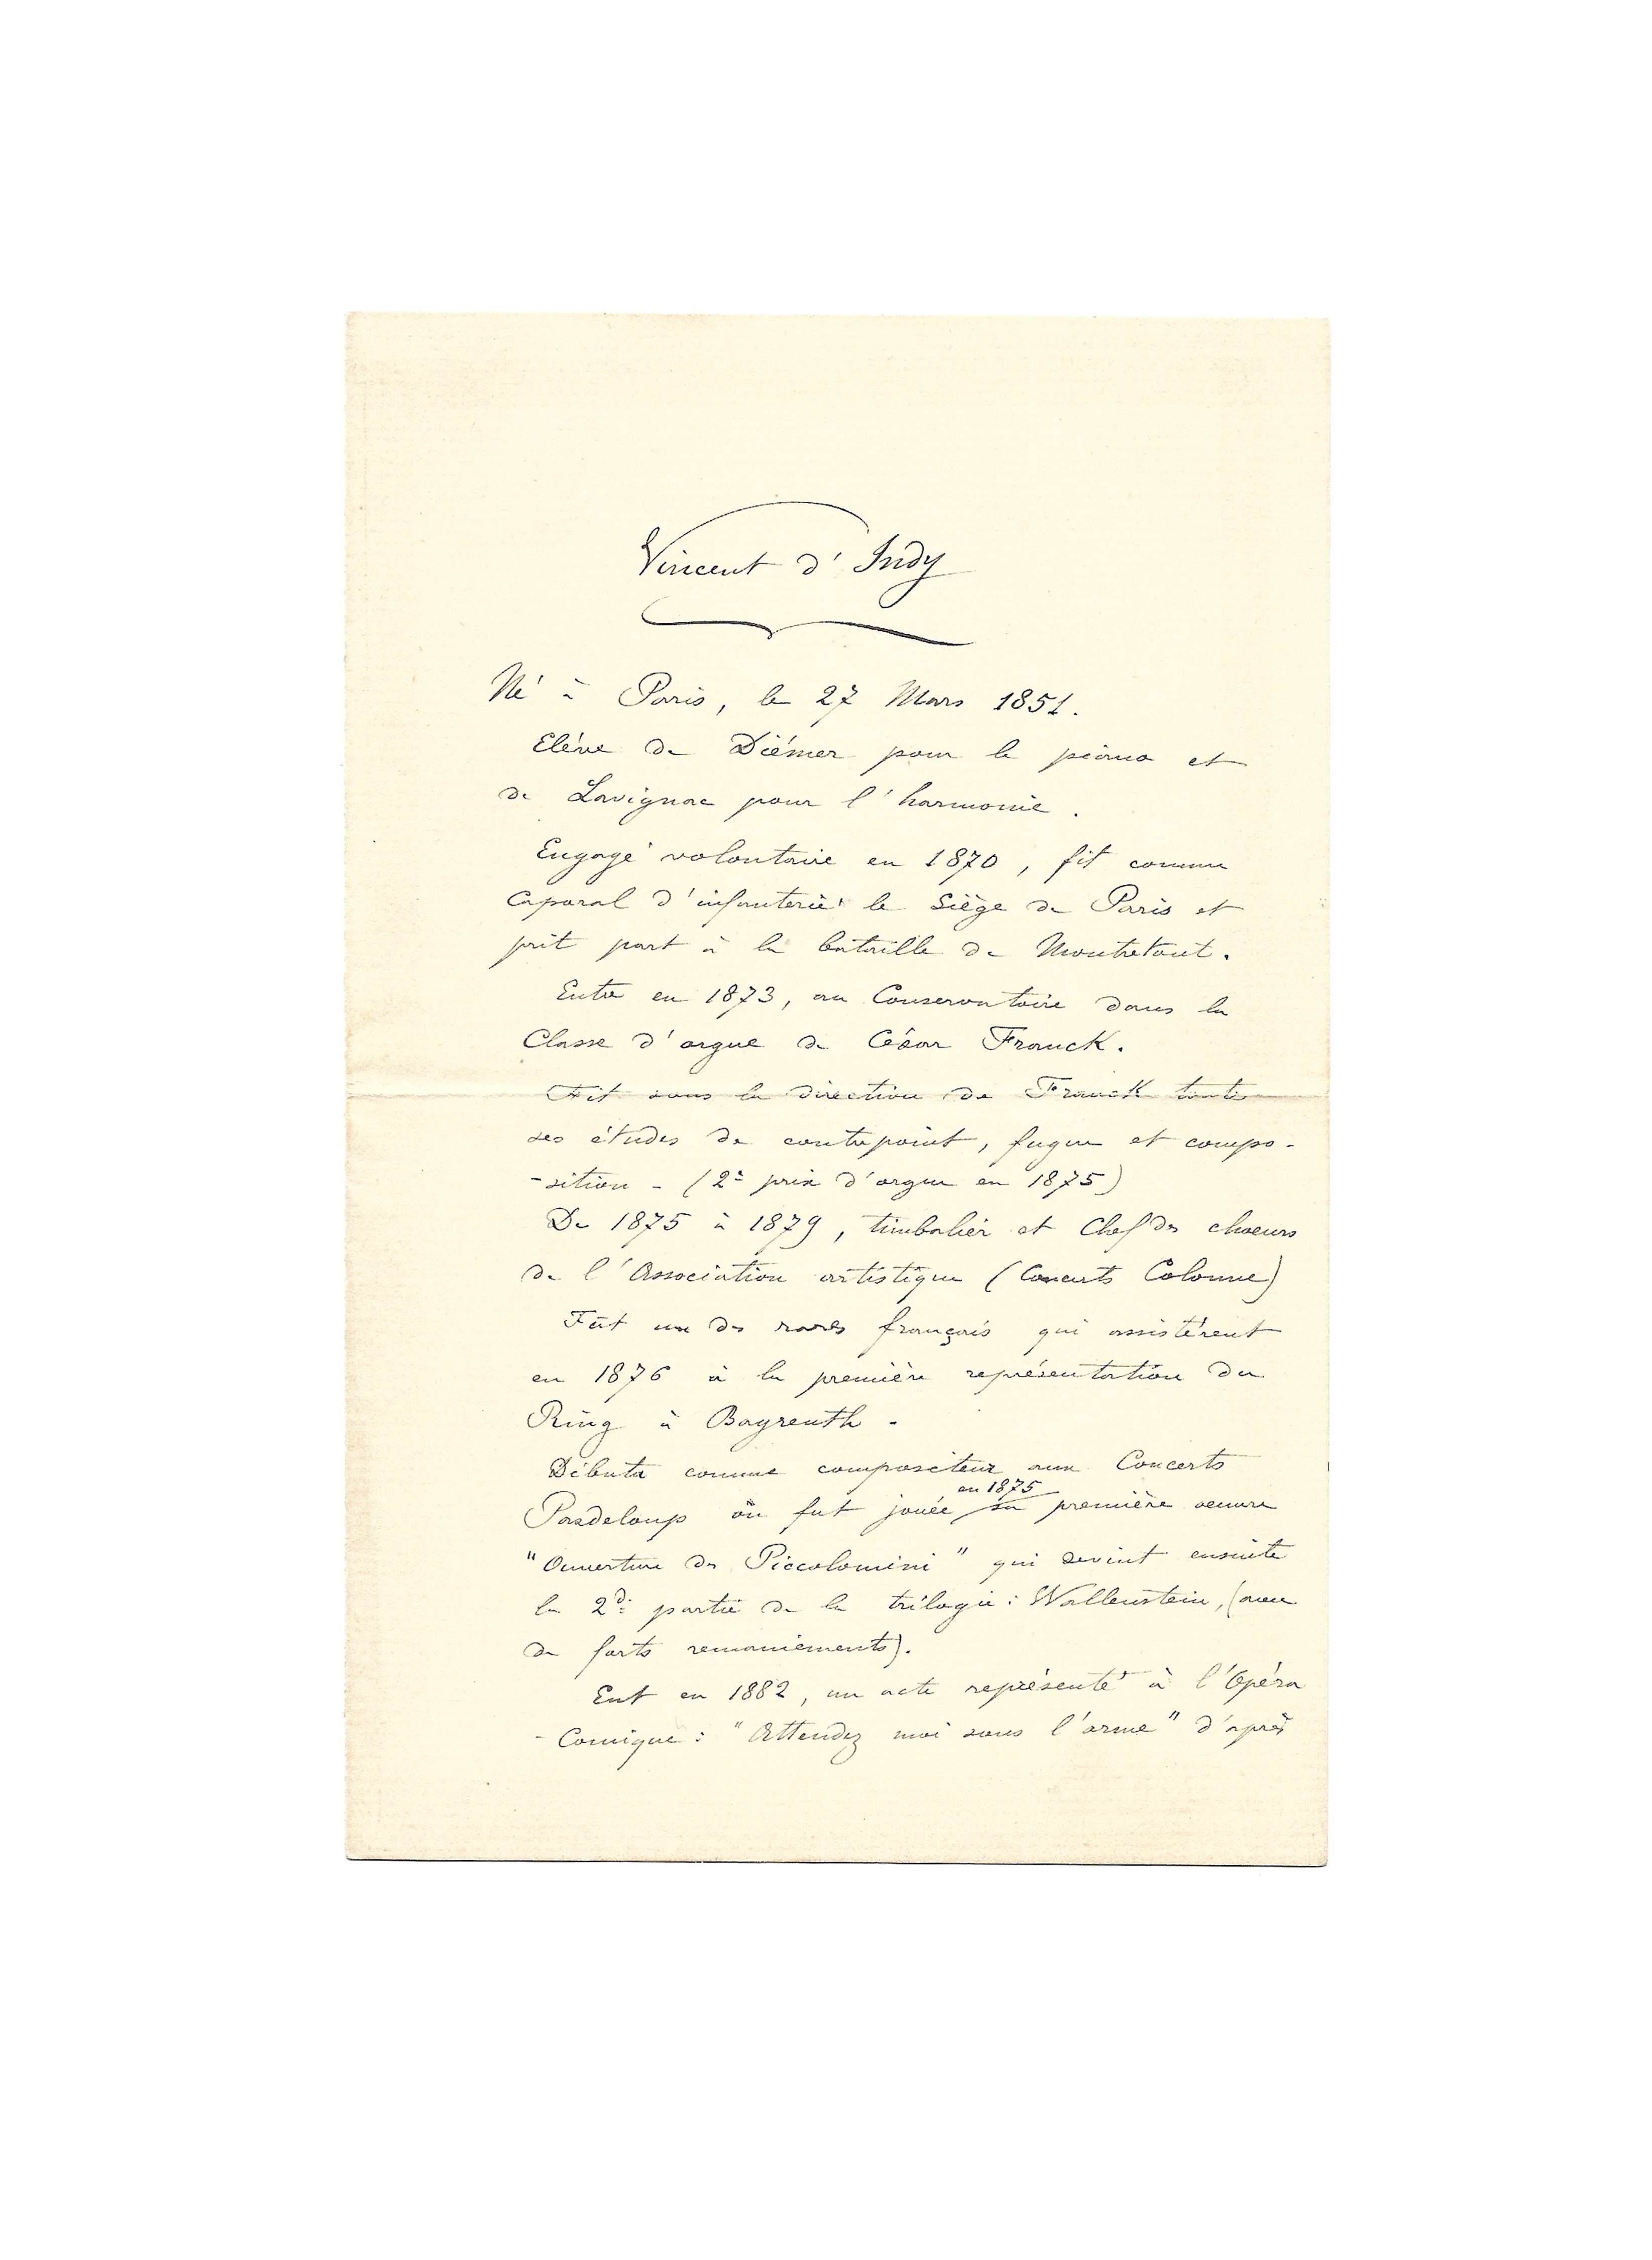 Vincent d'Indy
Né à Paris, le 27 Mars 1851.
Elève de Diémer pour le piano et
de Lavignac pour l'harmonie.
Engagé volontaire en 1870, fit comme
Caporal d'infanterie le Siège de Paris et
prit part à la bataille de Montretout.
Entre en 1873, au Conservatoire dans la
Classe d'orgue de César Franck.
Fit sous la direction de Franck toutes
ses études de contrepoint, fugue et compo-
-sition - (2e prix d'orgue en 1875)
De 1875 à 1879, timbalier et Chef des choeurs
de l'Association artistique (Concerts Colonne)
Fût un des rares français qui assistèrent
en 1876 à la première représentation du
Ring à Bayreuth.
Débuta comme compositeur aux Concerts
en 1875
Pasdeloup où fut jouée sa première oeuvre
"Ouverture des Piccolomini" qui devint ensuite
la 2de partie de la trilogie: Wallenstein, (avec
de forts remaniements).
Eut en 1882, un acte représenté à l'Opéra
-Comique: "Attendez moi sous l'orme" d'après